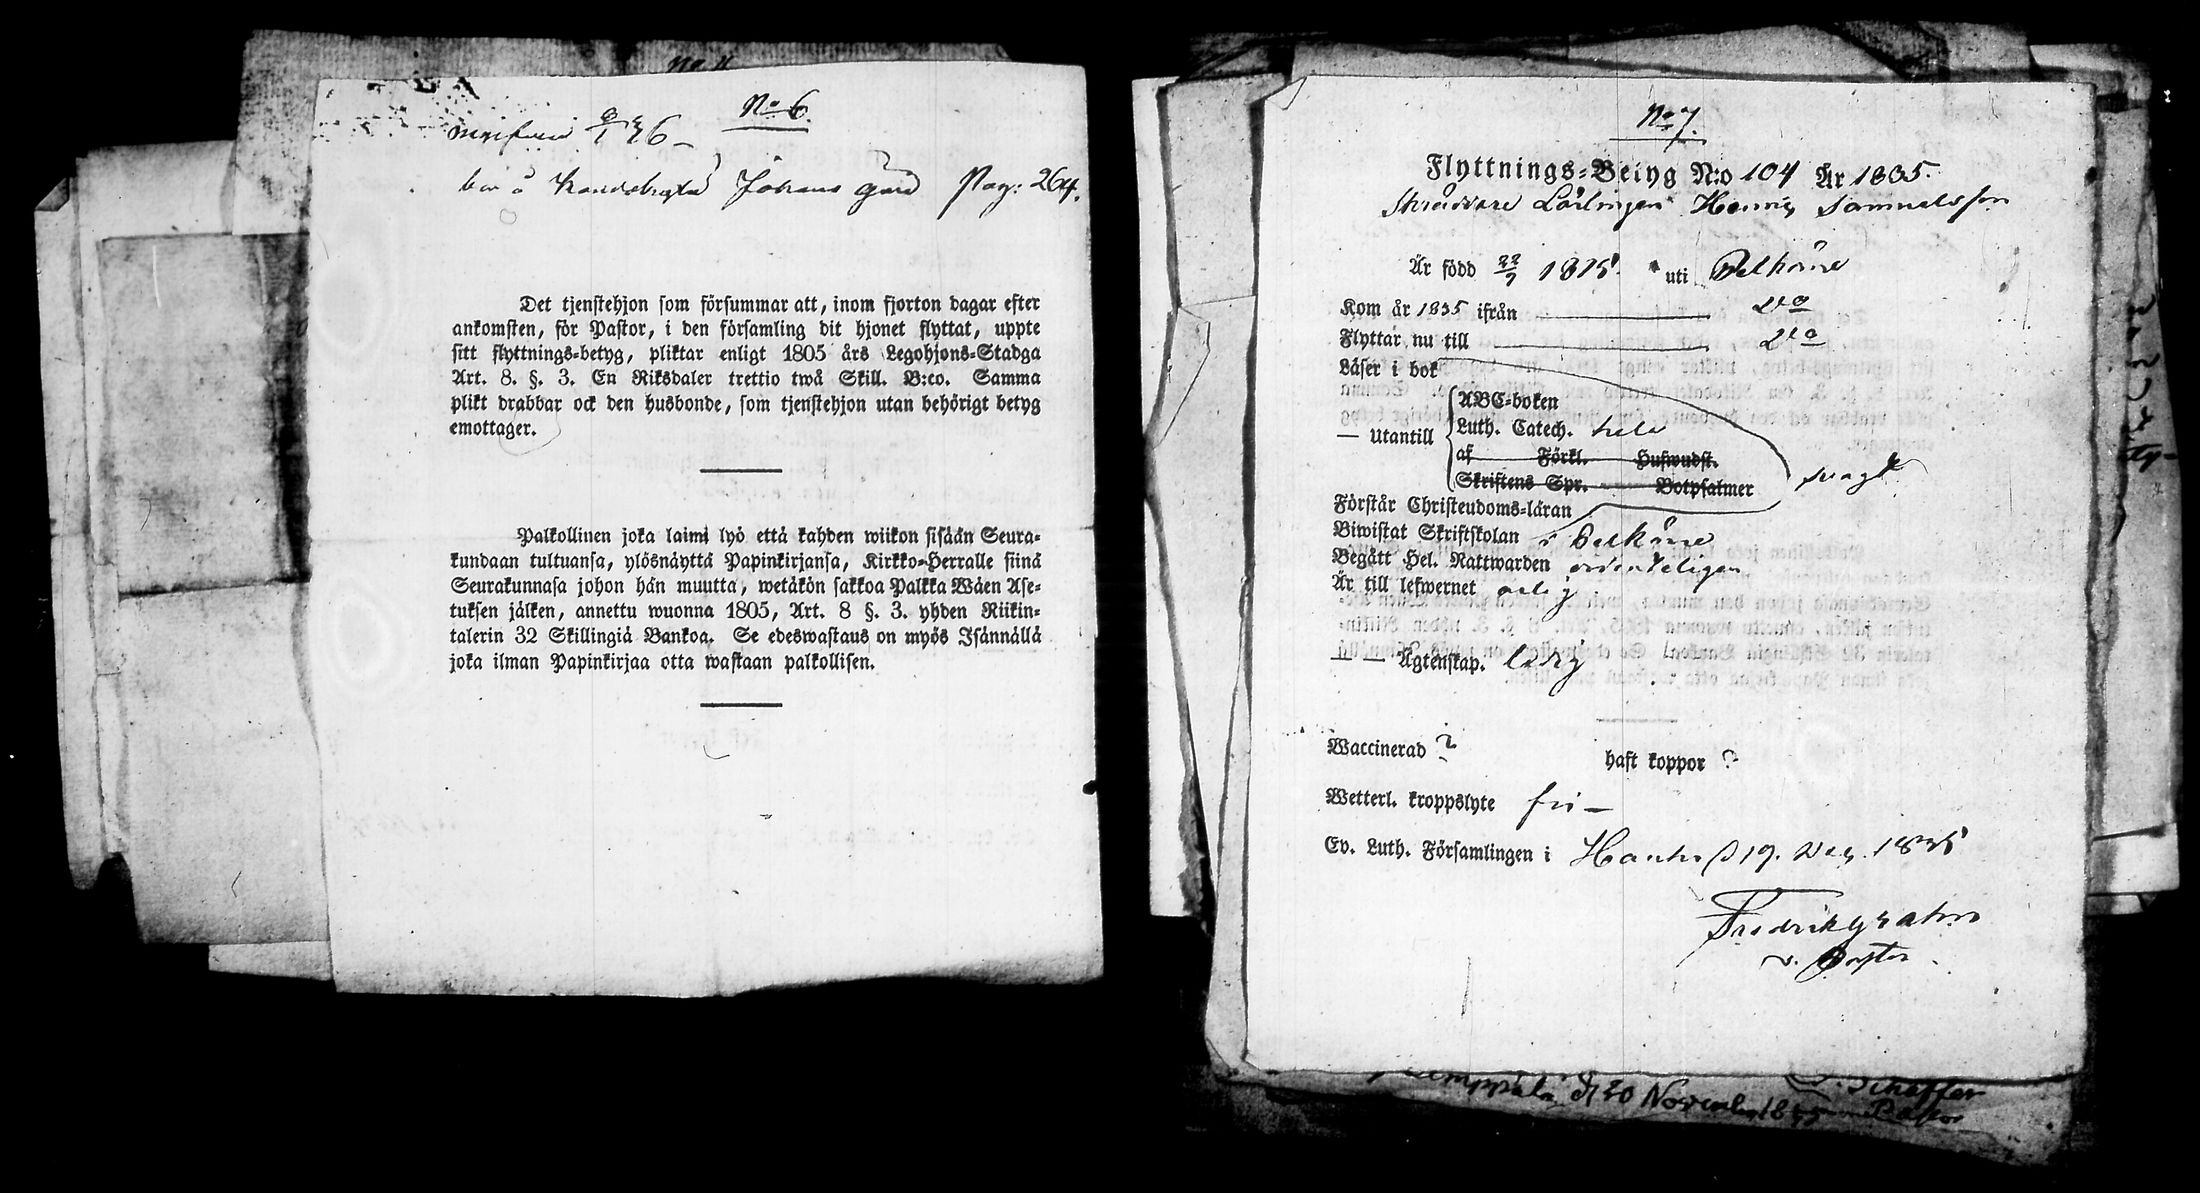 No 6.
Pag: 264.
Det tjenstehjon som försummar att, inom fjorton dagar efter
ankomsten, för Pastor, i den församling dit hjonet flyttat, uppte
sitt flyttnings-betyg, pliktar enligt 1805 års Legohjons-Stadga
Art. 8. §. 3. En Riksdaler trettio twå Skill. B:co. Samma
plikt drabbar ock den husbonde, som tjenstehjon utan behörigt betyg
emottager.
Palkollinen joka laimi lyö että kahden wiikon sisään Seura-
kundaan tultuansa, ylösnäyttä Papinkirjansa, Kirkko-Herralle siinä
Seurakunnasa johon hän muutta, wetäkön sakkoa Palkka Wäen Ase-
tuksen jälken, annettu wuonna 1805, Art. 8 §. 3. yhden Riikin-
talerin 32 Skillingiä Bankoa. Se edeswastaus on myös Isännällä
joka ilman Papinkirjaa otta wastaan palkollisen.
No 7.
Flyttnings-Betyg N:o 104 År 1835.
Skräddare Lärlingen Henric Samuelsson
Är född 22/9 1815. uti Pelkäne
Kom år 1835 ifrån D:o
Flyttar nu till D:o
Läser i bok
— Utantill
ABC-boken
Luth. Catech. hela
af Förkl. Huswudst.
Skriftens Spr. Botpsalmer
svagt
Förstår Christendoms-läran
Biwistat Skriftskolan i Pelkäne
Begått Hel. Nattwarden ordenteligen
Är till lefwernet
— — Ägtenskap. ledig
Waccinerad ? haft koppor ?
Wetterl. kroppslyte fri —
Ev. Luth. Församlingen i Hauho d 19. Dec. 1835
Fredrik
v. Pastor
d 20 November 1835
Pastor